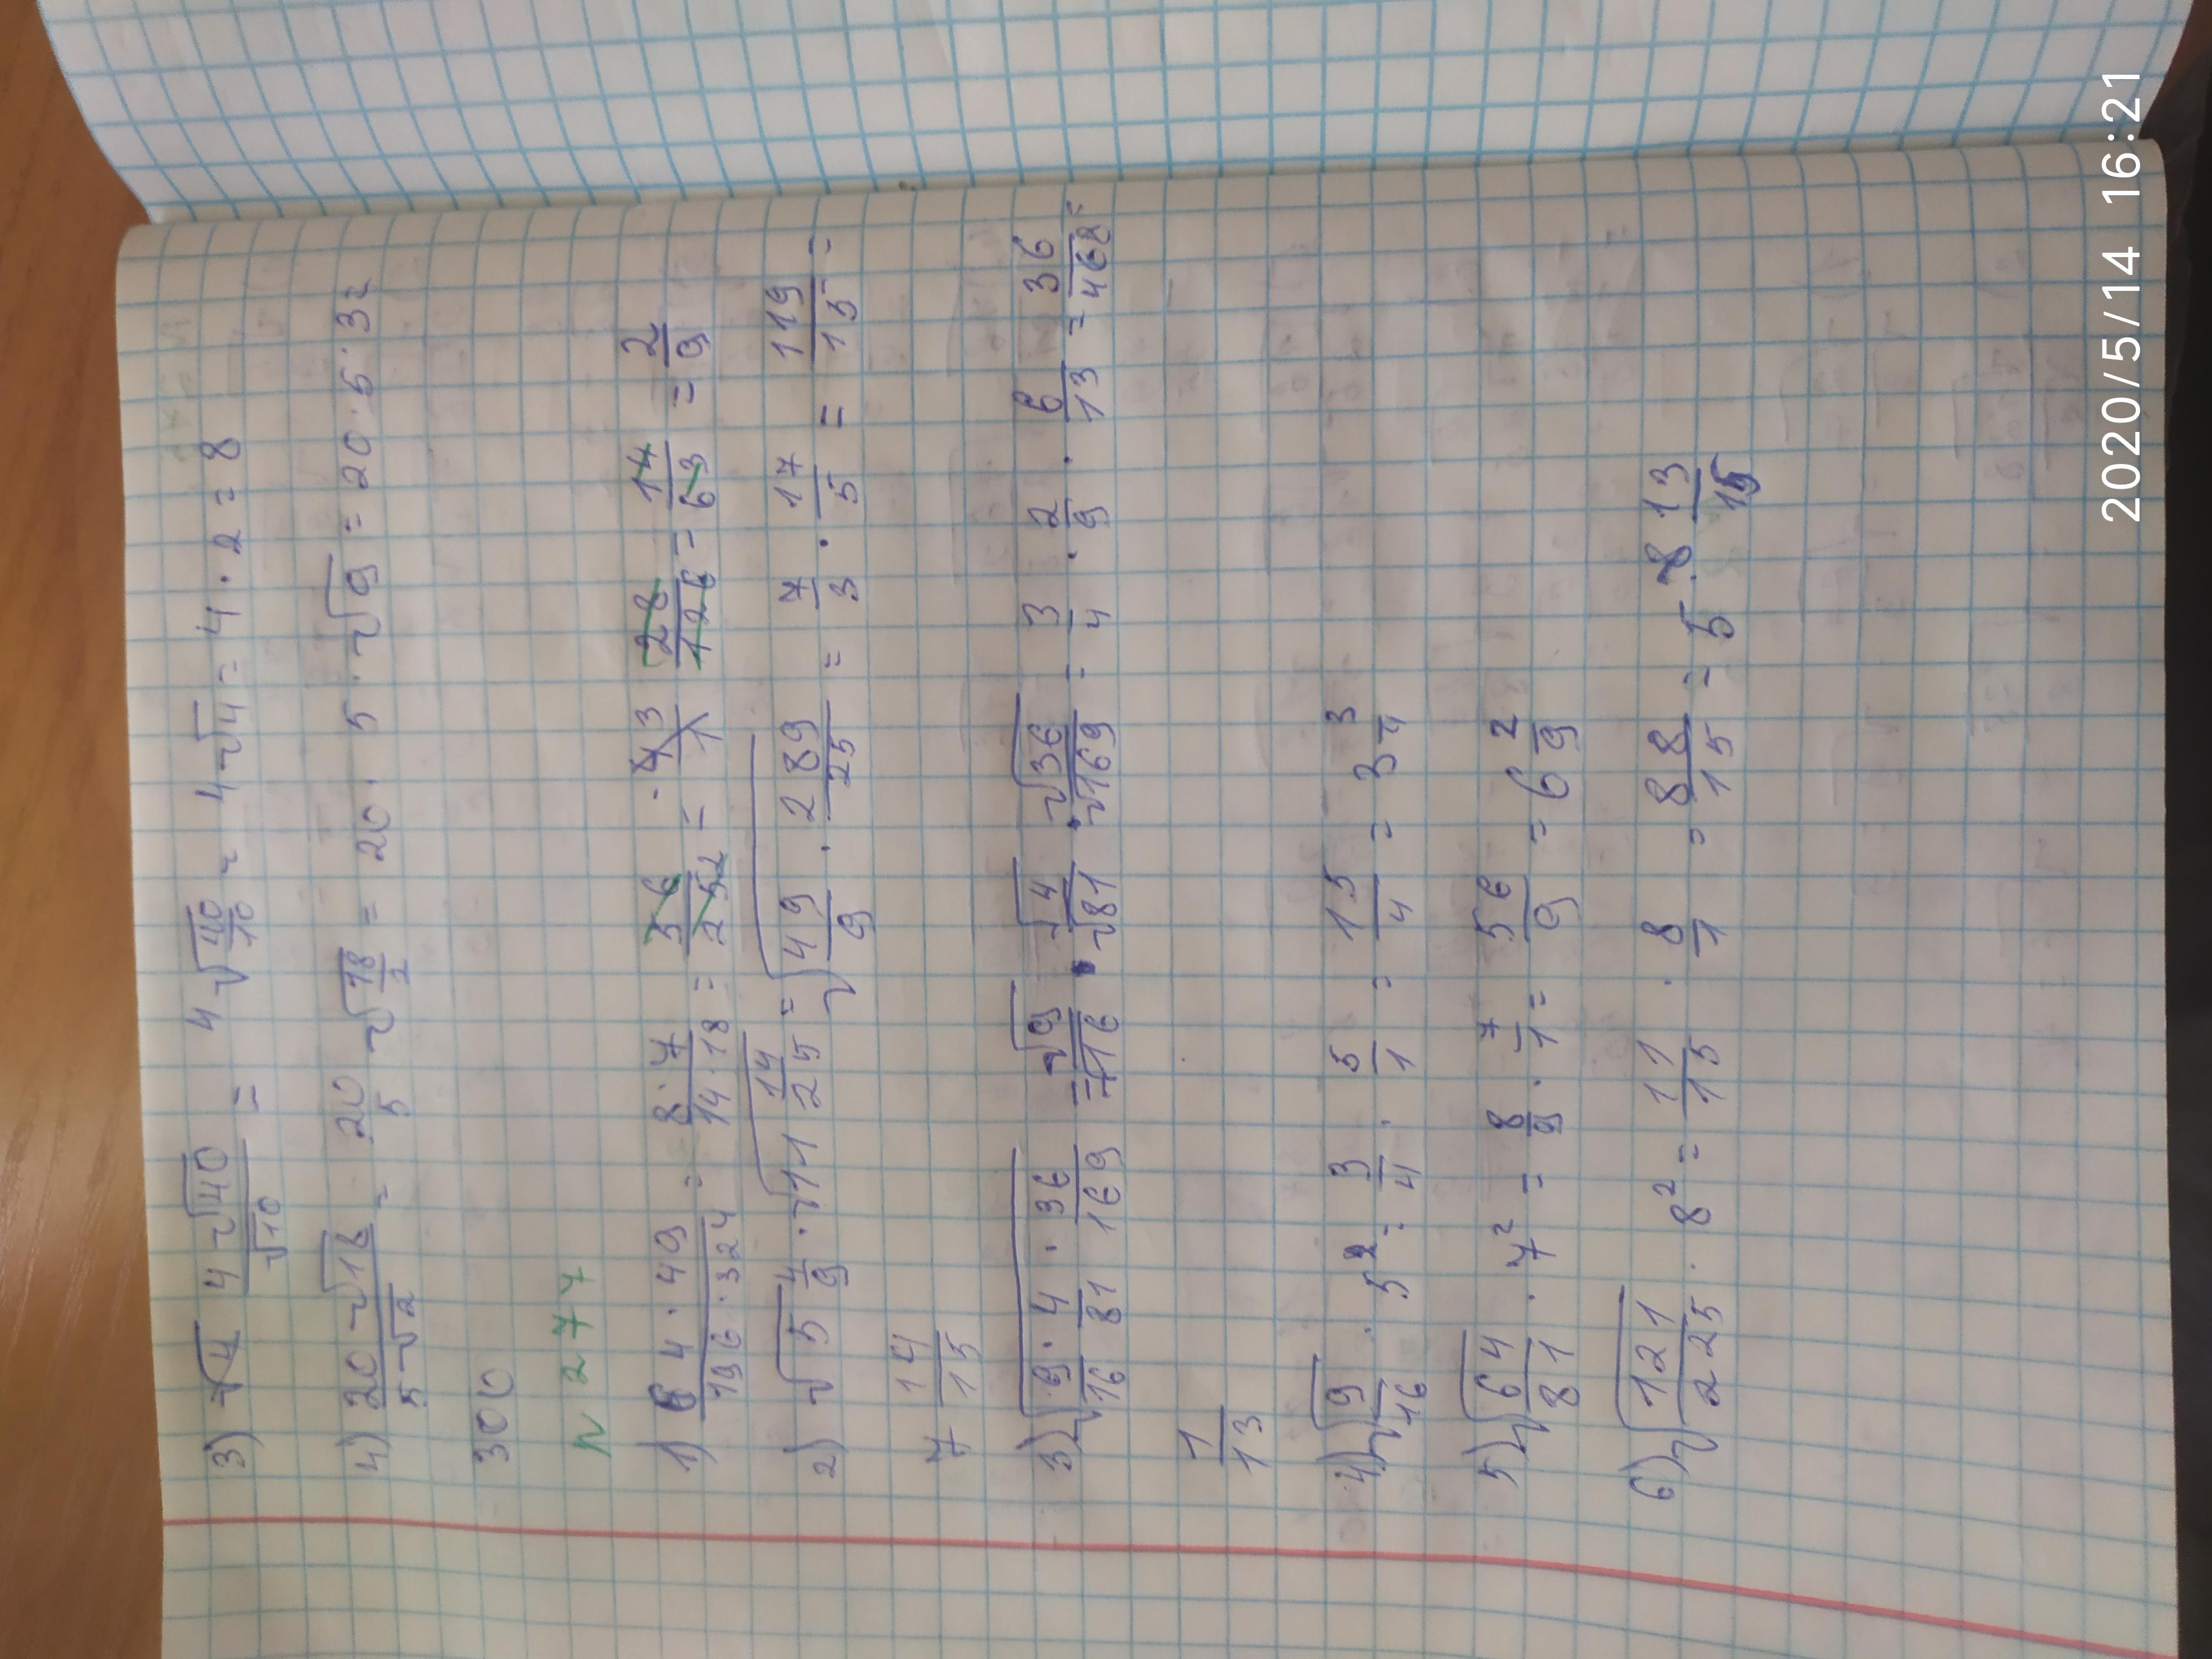 3) √4 4√40/√10 = 4√40/10 = 4√4 = 4 · 2 = 8
4) 20√18/5√2 = 20/5 √18/2 = 20 · 5 · √9 = 20 · 5 · 3 =
300
N 277
1) 64 · 49/196 · 324 = 8 · 7/14 · 18 = 56/252 = 28/126 = 14/63 = 2/9
2) √5 4/9 · √11 14/25 = √49/9 · 289/25 = 7/3 · 17/5 = 119/15 =
7 14/15
3) √9/16 · 4/81 · 36/169 = √9/√16 · √4/√81 · √36/√169 = 3/4 · 2/9 · 6/13 = 36/468 =
1/13
4) √9/16 · 5² = 3/4 · 5/1 = 15/4 = 3 3/4
5) √64/81 · 7² = 8/9 · 7/1 = 56/9 = 6 2/9
6) √121/225 · 8² = 11/15 · 8/1 = 88/15 = 5 13/15
2020/5/14 16:21